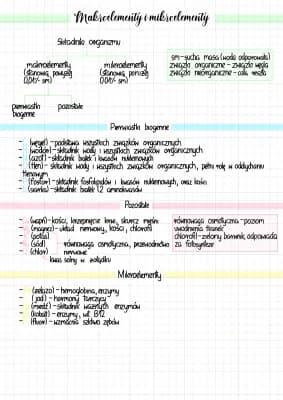 Makroelementy i mikroelementy
Składniki organizmu
makroelementy
(stanowią powyżej
0,01% sm)
mikroelementy
(stanowią poniżej
0,01% sm)
sm-sucha masa (woda odparowała)
związki organiczne - związki węgla
związki nieorganiczne - cała reszta
pierwiastki
biogenne
pozostałe
Pierwiastki biogenne
- (węgiel) - podstawa wszystkich związków organicznych
- (wodór) - składnik wody i wszystkich związków organicznych
- (azot) - składnik białek i kwasów nukleinowych
- (tlen) - składnik wody i wszystkich związków organicznych, pełni rolę w oddychaniu
tlenowym
- (fosfor) - składnik fosfolipidów i kwasów nukleinowych, oraz kości
- (siarka) - składnik białek i 2 aminokwasów
Pozostałe
- (wapń) - kości, krzepnięcie krwi, skurcz mięśni
- (magnez) - układ nerwowy, kości, chlorofil
- (potas)
- (sód)
- (chlor)
równowaga osmotyczna, przewodnictwo
nerwowe
kwas solny w żołądku
równowaga osmotyczna - poziom
uwodnienia tkanek
chlorofil - zielony barwnik, odpowiada
za fotosyntezę
Mikroelementy
- (żelazo) - hemoglobina, enzymy
- (jod) - hormony tarczycy
- (miedź) - składnik ważnych enzymów
- (kobalt) - enzymy, wit. B12
- (fluor) - wzmacnia szkliwo zębów